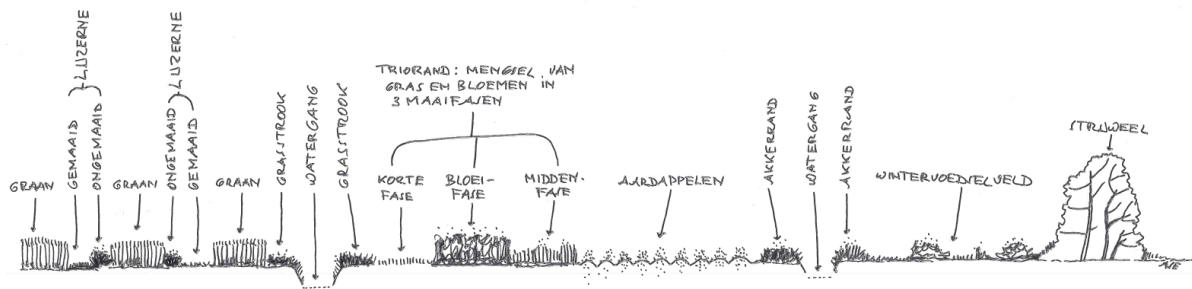 GRAAN
GEMAAID
ONGEMAAID
LUZERNE
GRAAN
ONGEMAAID
GEMAAID
LUZERNE
GRAAN
GRASSTROOK
WATERGANG
GRASSTROOK
TRIORAND: MENGSEL VAN
GRAS EN BLOEMEN IN
3 MAAIFASEN
KORTE
FASE
BLOEI-
FASE
MIDDEN-
FASE
AARDAPPELEN
AKKERRAND
WATERGANG
AKKERRAND
WINTERVOEDSELVELD
STRUWEEL